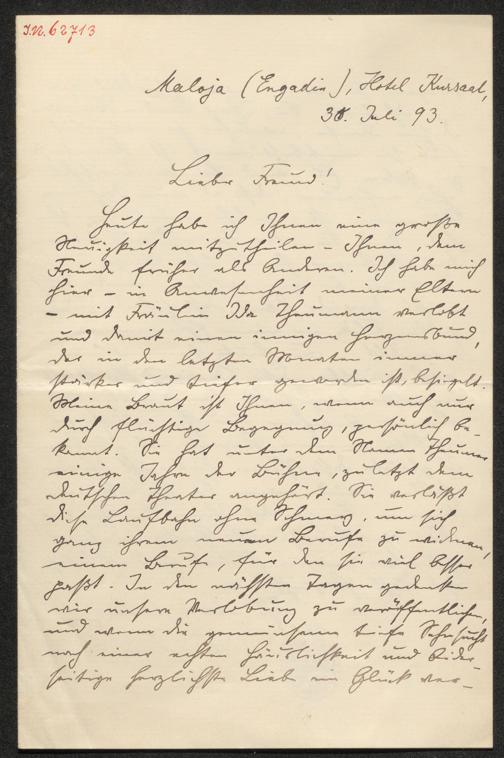 J.N. 62713
Maloja (Engadin), Hotel Kursaal,
30. Juli 93.
Lieber Freund!
Heute habe ich Ihnen eine große
Neuigkeit mitzutheilen – Ihnen, dem
Freunde früher als Anderen. Ich habe mich
hier – in Anwesenheit meiner Eltern
– mit Fräulein Ida Theumann verlobt
und damit einen innigen Herzensbund,
der in den letzten Monaten immer
stärker und tiefer geworden ist, besiegelt.
Meine Braut ist Ihnen, wenn auch nur
durch flüchtige Begegnung, persönlich be-
kannt. Sie hat unter dem Namen Theumer
einige Jahre der Bühne, zuletzt dem
deutschen Theater angehört. Sie verläßt
diese Laufbahn ohne Schmerz, um sich
ganz ihrem neuen Berufe zu widmen,
einem Berufe, für den sie viel besser
paßt. In den nächsten Tagen gedenken
wir unsere Verlobung zu veröffentlichen,
und wenn die gemeinsame tiefe Sehnsucht
nach einer echten Häuslichkeit und beider-
seitige herzlichste Liebe ein Glück ver-